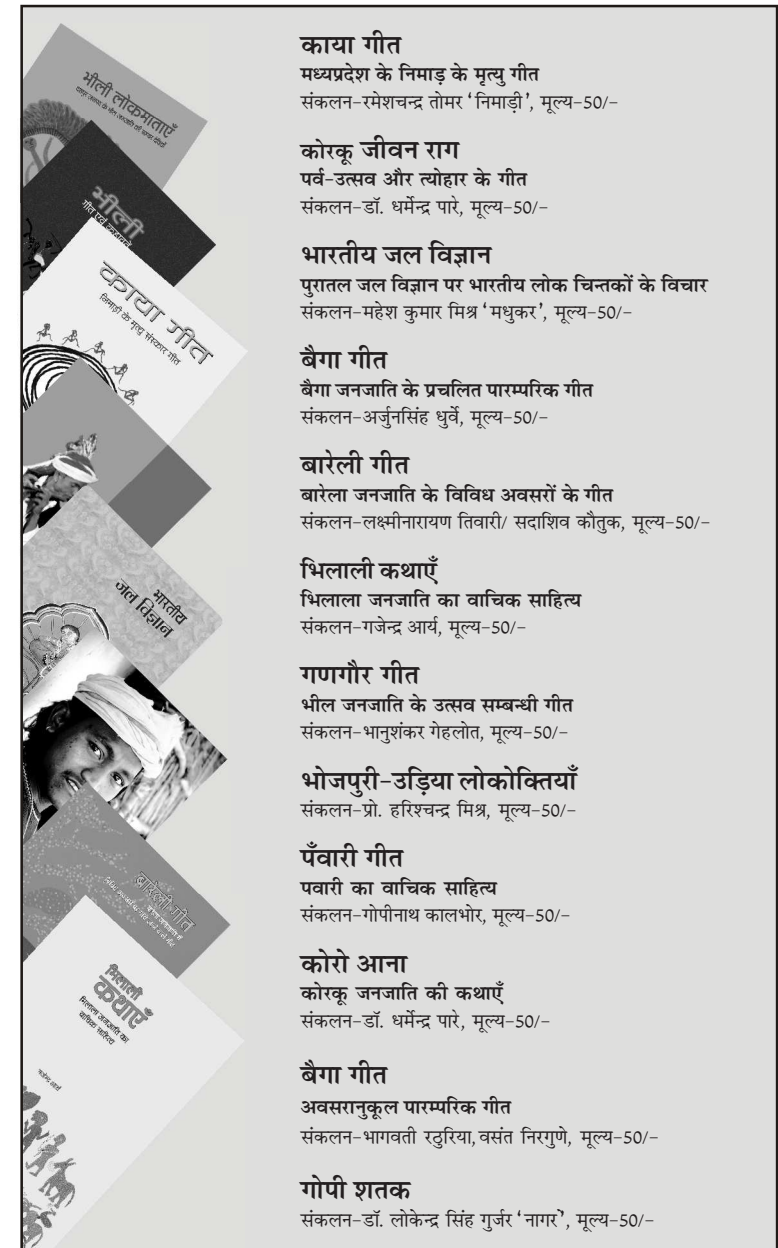 भीली लोकमाताएँ
भीली
गीत एवं
काया गीत
निमाड़ी के मृत्यु संस्कार गीत
भारतीय
जल विज्ञान
बारेली गीत
भिलाली
कथाएँ
भिलाला जनजाति का
वाचिक साहित्य
काया गीत
मध्यप्रदेश के निमाड़ के मृत्यु गीत
संकलन-रमेशचन्द्र तोमर ‘निमाड़ी’, मूल्य-50/-
कोरकू जीवन राग
पर्व-उत्सव और त्योहार के गीत
संकलन-डॉ. धर्मेन्द्र पारे, मूल्य-50/-
भारतीय जल विज्ञान
पुरातल जल विज्ञान पर भारतीय लोक चिन्तकों के विचार
संकलन-महेश कुमार मिश्र ‘मधुकर’, मूल्य-50/-
बैगा गीत
बैगा जनजाति के प्रचलित पारम्परिक गीत
संकलन-अर्जुनसिंह धुर्वे, मूल्य-50/-
बारेली गीत
बारेला जनजाति के विविध अवसरों के गीत
संकलन-लक्ष्मीनारायण तिवारी/ सदाशिव कौतुक, मूल्य-50/-
भिलाली कथाएँ
भिलाला जनजाति का वाचिक साहित्य
संकलन-गजेन्द्र आर्य, मूल्य-50/-
गणगौर गीत
भील जनजाति के उत्सव सम्बन्धी गीत
संकलन-भानुशंकर गेहलोत, मूल्य-50/-
भोजपुरी-उड़िया लोकोक्तियाँ
संकलन-प्रो. हरिश्चन्द्र मिश्र, मूल्य-50/-
पँवारी गीत
पवारी का वाचिक साहित्य
संकलन-गोपीनाथ कालभोर, मूल्य-50/-
कोरो आना
कोरकू जनजाति की कथाएँ
संकलन-डॉ. धर्मेन्द्र पारे, मूल्य-50/-
बैगा गीत
अवसरानुकूल पारम्परिक गीत
संकलन-भागवती रठुरिया, वसंत निरगुणे, मूल्य-50/-
गोपी शतक
संकलन-डॉ. लोकेन्द्र सिंह गुर्जर ‘नागर’, मूल्य-50/-